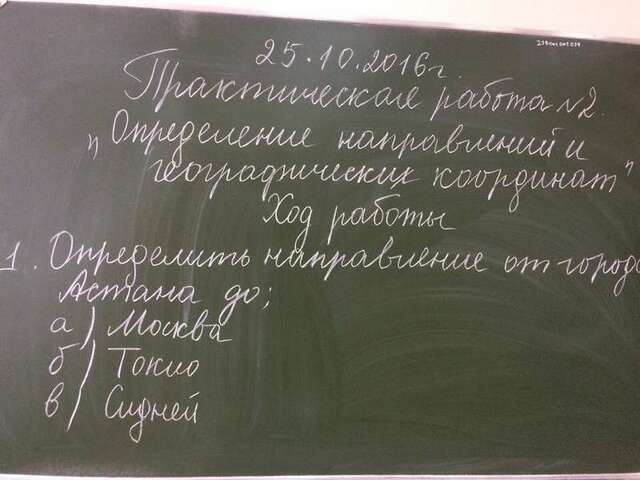 25.10.2016г.
Практическая работа №2.
"Определение направлений и
географических координат"
Ход работы
1. Определить направление от города
Астана до;
а) Москва
б) Токио
в) Сидней